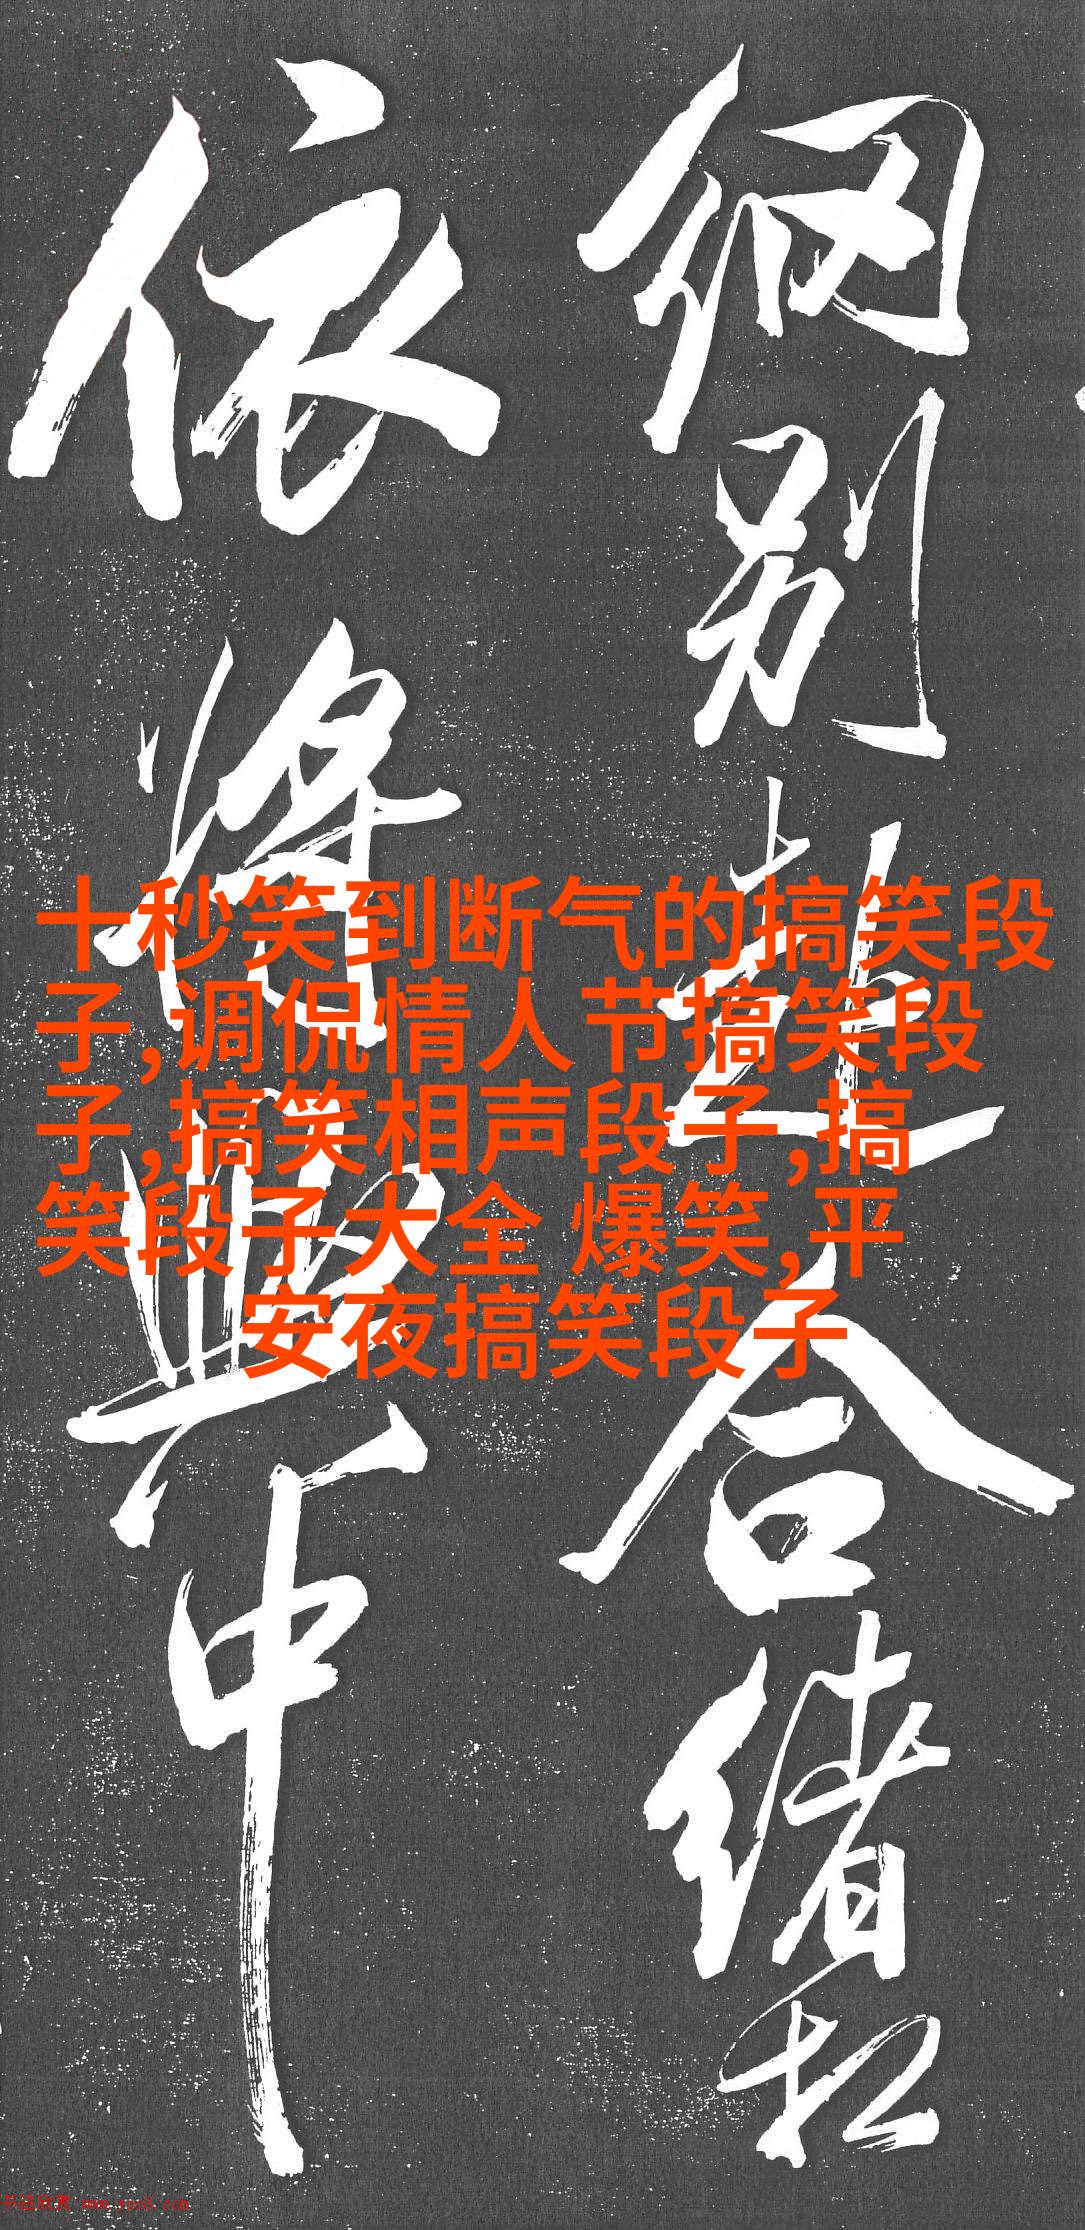 细别赴合绪松
依将兴中
十秒笑到断气的搞笑段
子,调侃情人节搞笑段
子,搞笑相声段子,搞
笑段子大全 爆笑,平
安夜搞笑段子